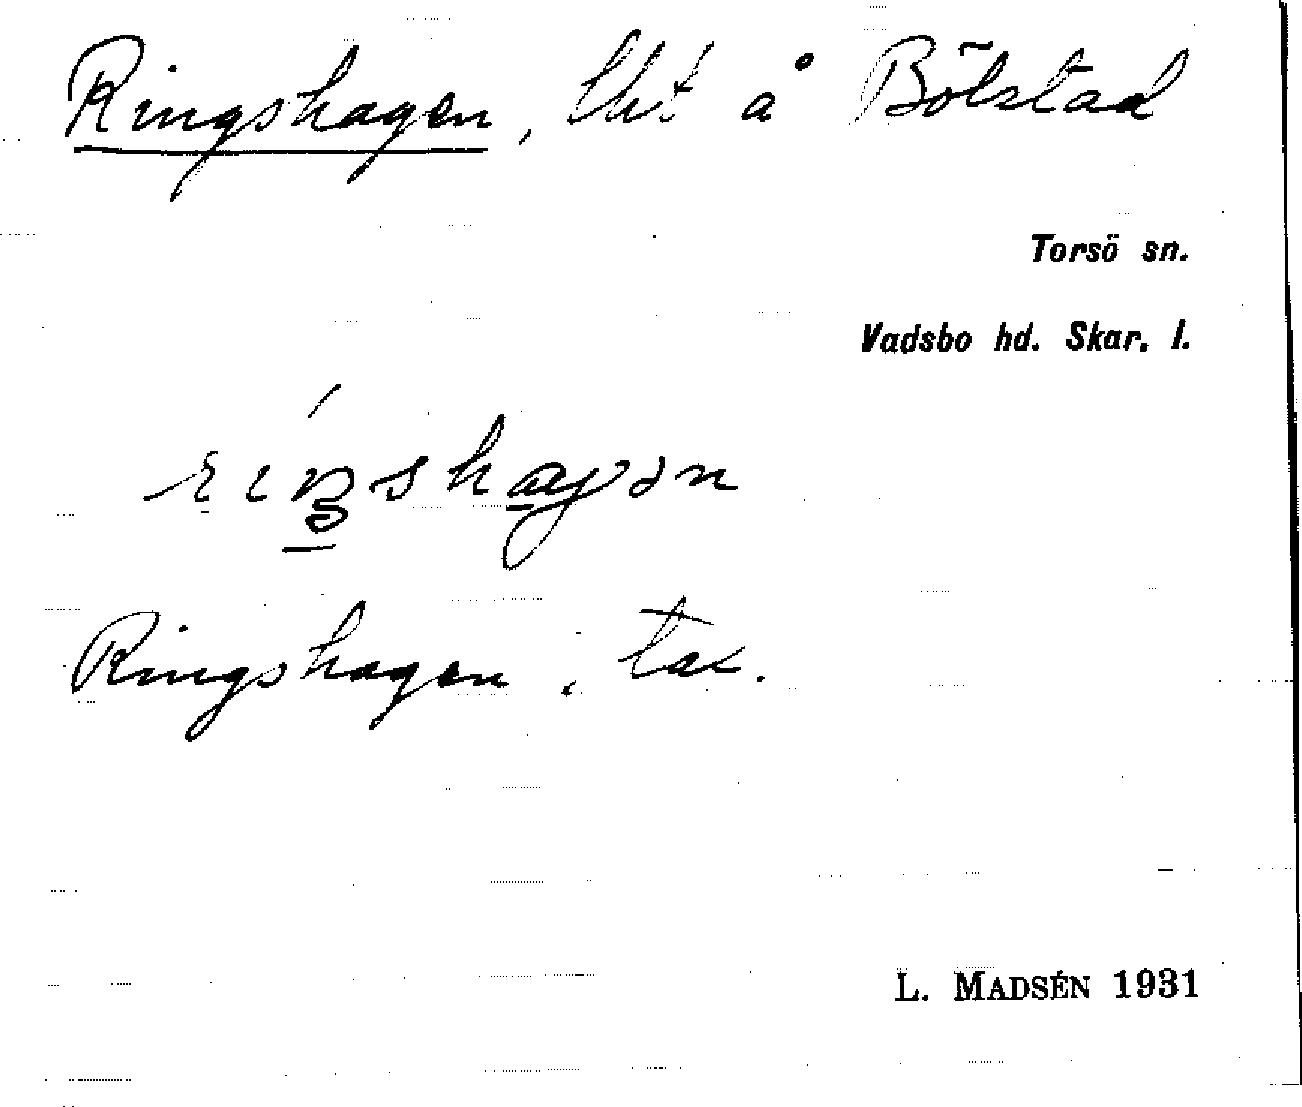 Ringshagen, lht å Bölstad
Torsö sn.
Vadsbo hd. Skar. l.
Ringshagen, tax.
L. MADSÉN 1931